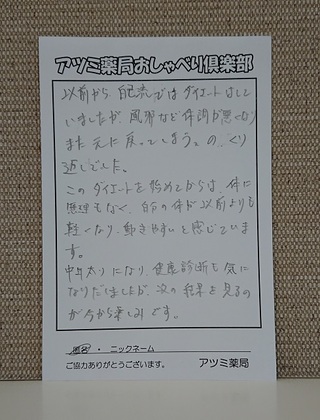 アツミ薬局おしゃべり倶楽部
以前から、自己流ではダイエットはして
いましたが、風邪など体調が悪くなり
また元に戻ってしまう。の、くり
返しでした。
このダイエットを始めてからは、体に
無理もなく、自分の体が以前よりも
軽くなり、動きやすいと感じていま
す。
中年太りになり、健康診断も気に
なりだしましたが、次の結果を見るの
が今から楽しみです。
匿名 ・ ニックネーム
ご協力ありがとうございます。 アツミ薬局